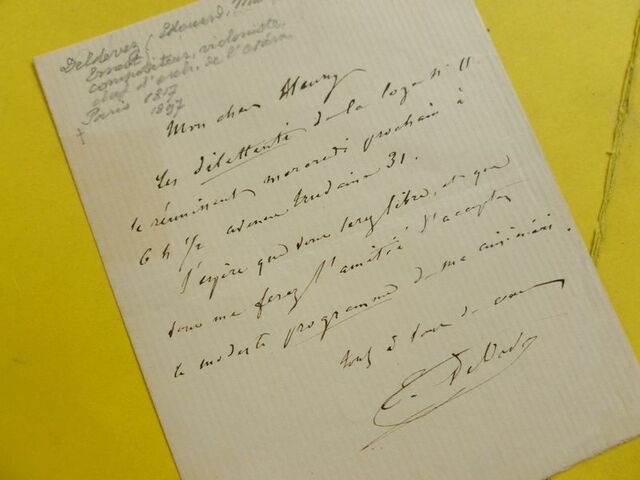 Deldevez { Edouard,
Ernest
compositeur, violoniste,
chef d'orch. de l'opéra
Paris 1817
† 1897
Mon cher Maury
Les dilettanti de la loge n° 11
se réunissent mercredi prochain à
6 h 1/2 avenue Trudaine 31.
J'espère que vous serez libre, et que
vous me ferez l'amitié d'accepter
le modeste programme de ma cuisinière.
tout à vous de
E. Deldevez